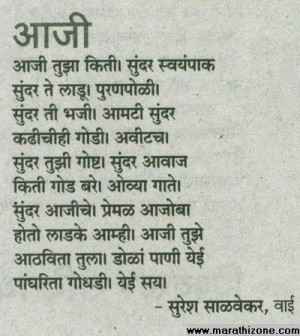 आजी
आजी तुझा किती। सुंदर स्वयंपाक
सुंदर ते लाडू। पुरणपोळी।
सुंदर ती भजी। आमटी सुंदर
कढीचीही गोडी। अवीटच।
सुंदर तुझी गोष्ट। सुंदर आवाज
किती गोड बरे। ओव्या गाते।
सुंदर आजीचे। प्रेमळ आजोबा
होतो लाडके आम्ही। आजी तुझे
आठविता तुला। डोळां पाणी येई
पांघरिता गोधडी। येई सय।
- सुरेश साळवेकर, वाई
www.marathizone.com